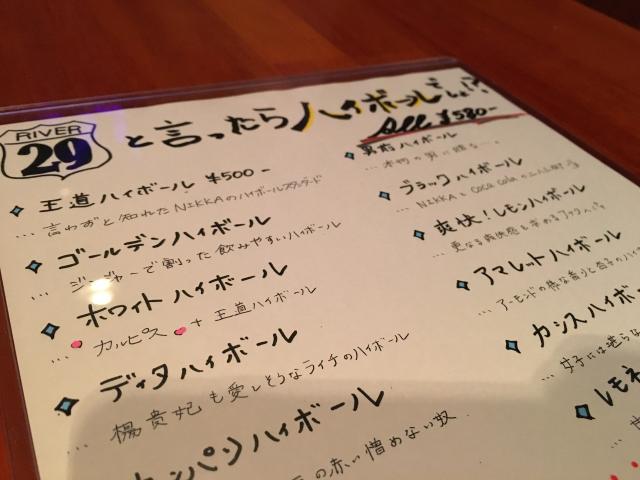 RIVER
29
と言ったらハイボールでしょ!?
All ¥580-
王道ハイボール ¥500-
… 言わずと知れたNIKKAのハイボールスタンダード
ゴールデンハイボール
… ジンジャーで割った飲みやすいハイボール
ホワイトハイボール
… カルピス + 王道ハイボール
ディタハイボール
… 楊貴妃も愛しそうなライチのハイボール
カンパリハイボール
の赤い憎めない奴
男前ハイボール
… 本物の男に贈る…。
ブラックハイボール
… NIKKAとCOCA colaの
爽快!レモンハイボール
… 更なる爽快感を求める
アマレットハイボール
… アーモンドの様な香りと杏子のハイ
カシスハイボ
… 女子には
レモネ